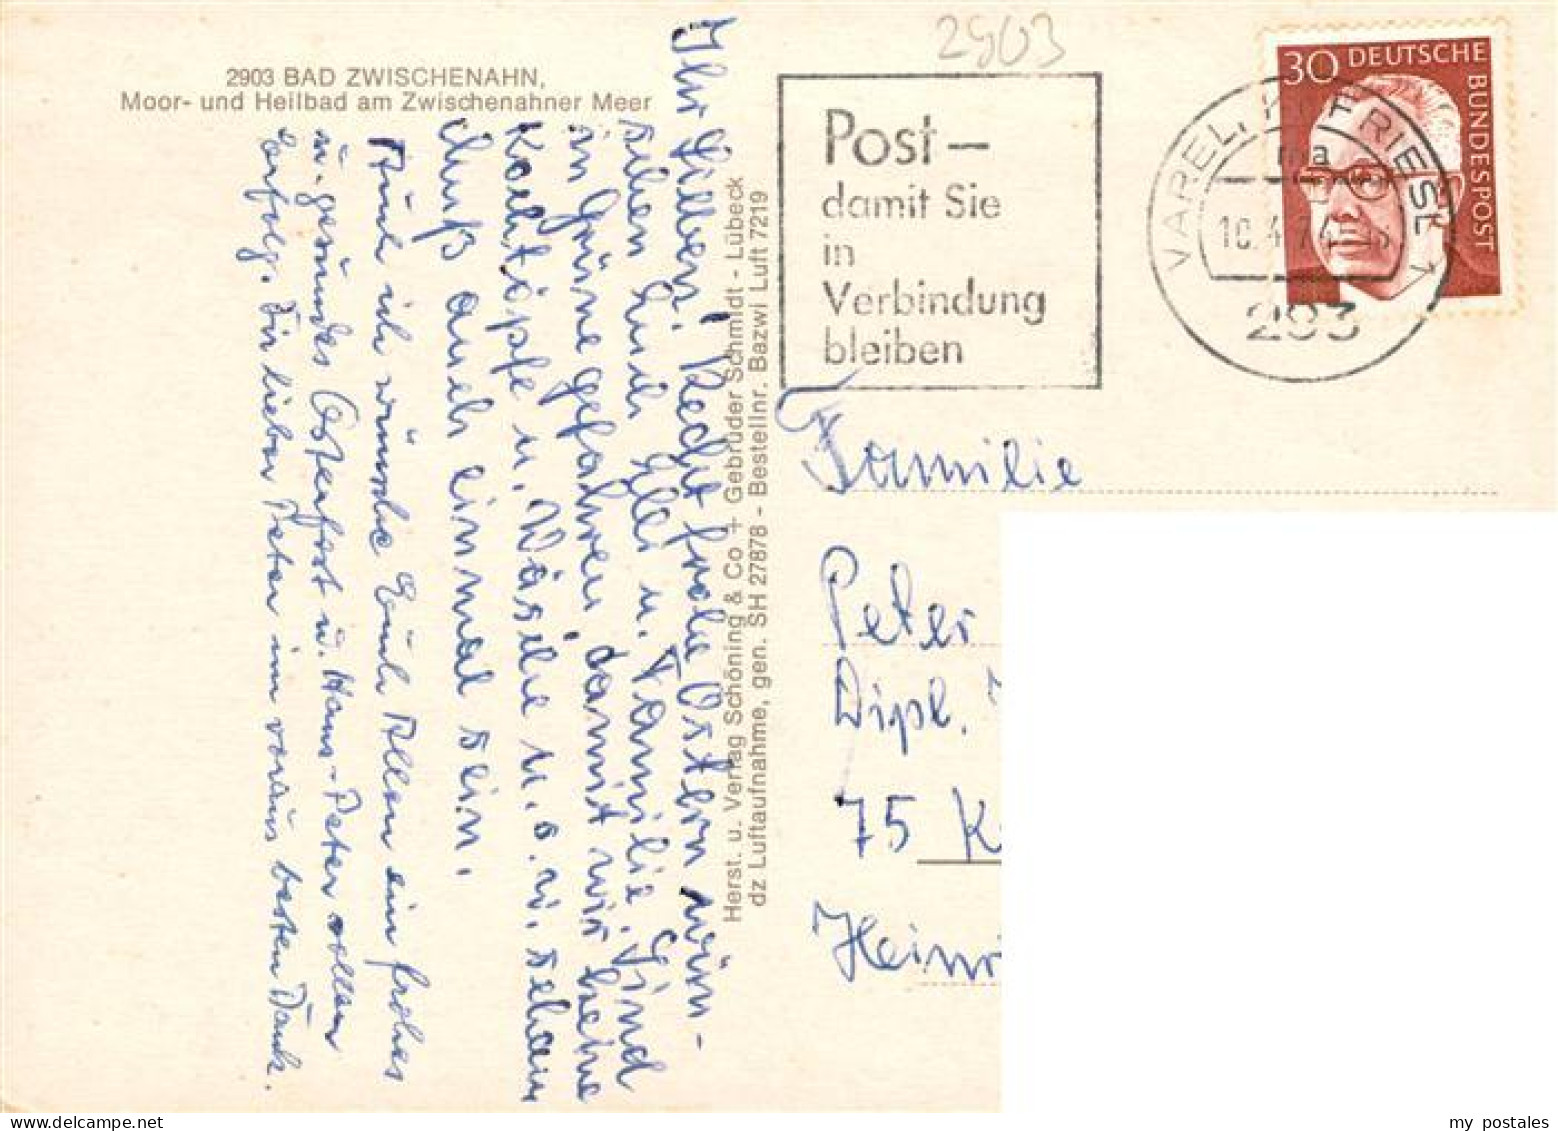 2903 BAD ZWISCHENAHN,
Moor- und Heilbad am Zwischenahner Meer
Ihr Lieben! Recht frohe Ostern wün-
schen Euch u. Familie. Sind
in Grüne gefahren damit wir keine
Kochtöpfe u. Wäsche u.s.w. sehen
muß auch einmal sein.
Auch ich wünsche Euch Allen ein frohes
u. gesundes Osterfest u. Hans-Peter vollen
Erfolg. Dir lieber Peter im voraus besten Dank.
Herst. u. Verlag Schöning & Co + Gebrüder Schmidt - Lübeck
dz Luftaufnahme, gen. SH 27878 - Bestellnr. Bazwi Luft 7219
2903
Post –
damit Sie
in
Verbindung
bleiben
VAREL, 1
ma
10.4.74
293
30 DEUTSCHE
BUNDESPOST
Familie
Peter
Dipl.
75 K
Heinr
my postales